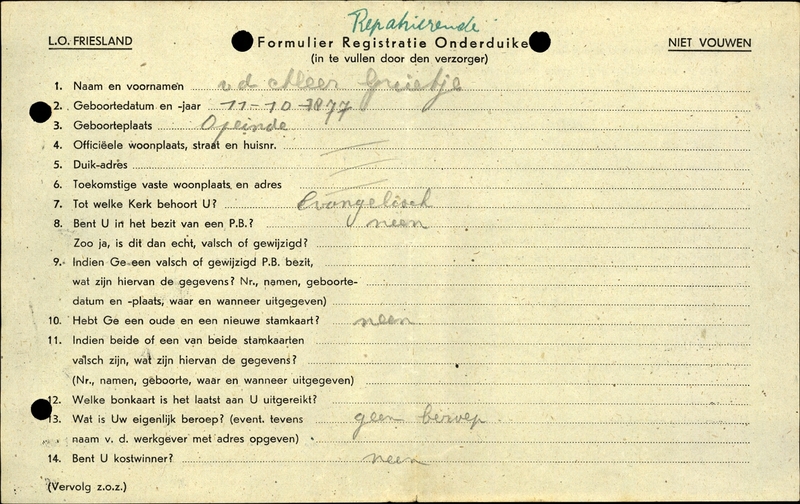 Repatrieerende
L.O. FRIESLAND
Formulier Registratie Onderduike
NIET VOUWEN
(in te vullen door den verzorger)
1. Naam en voornamen v d Meer Grietje
2. Geboortedatum en -jaar 11-10-1877
3. Geboorteplaats Opeinde
4. Officiëele woonplaats, straat en huisnr.
5. Duik-adres
6. Toekomstige vaste woonplaats en adres
7. Tot welke Kerk behoort U? Evangelisch
8. Bent U in het bezit van een P.B.? neen
Zoo ja, is dit dan echt, valsch of gewijzigd?
9. Indien Ge een valsch of gewijzigd P.B. bezit,
wat zijn hiervan de gegevens? Nr., namen, geboorte-
datum en -plaats, waar en wanneer uitgegeven)
10. Hebt Ge een oude en een nieuwe stamkaart? neen
11. Indien beide of een van beide stamkaarten
valsch zijn, wat zijn hiervan de gegevens?
(Nr., namen, geboorte, waar en wanneer uitgegeven)
12. Welke bonkaart is het laatst aan U uitgereikt?
13. Wat is Uw eigenlijk beroep? (event. tevens geen beroep
naam v. d. werkgever met adres opgeven)
14. Bent U kostwinner? neen
(Vervolg z.o.z.)